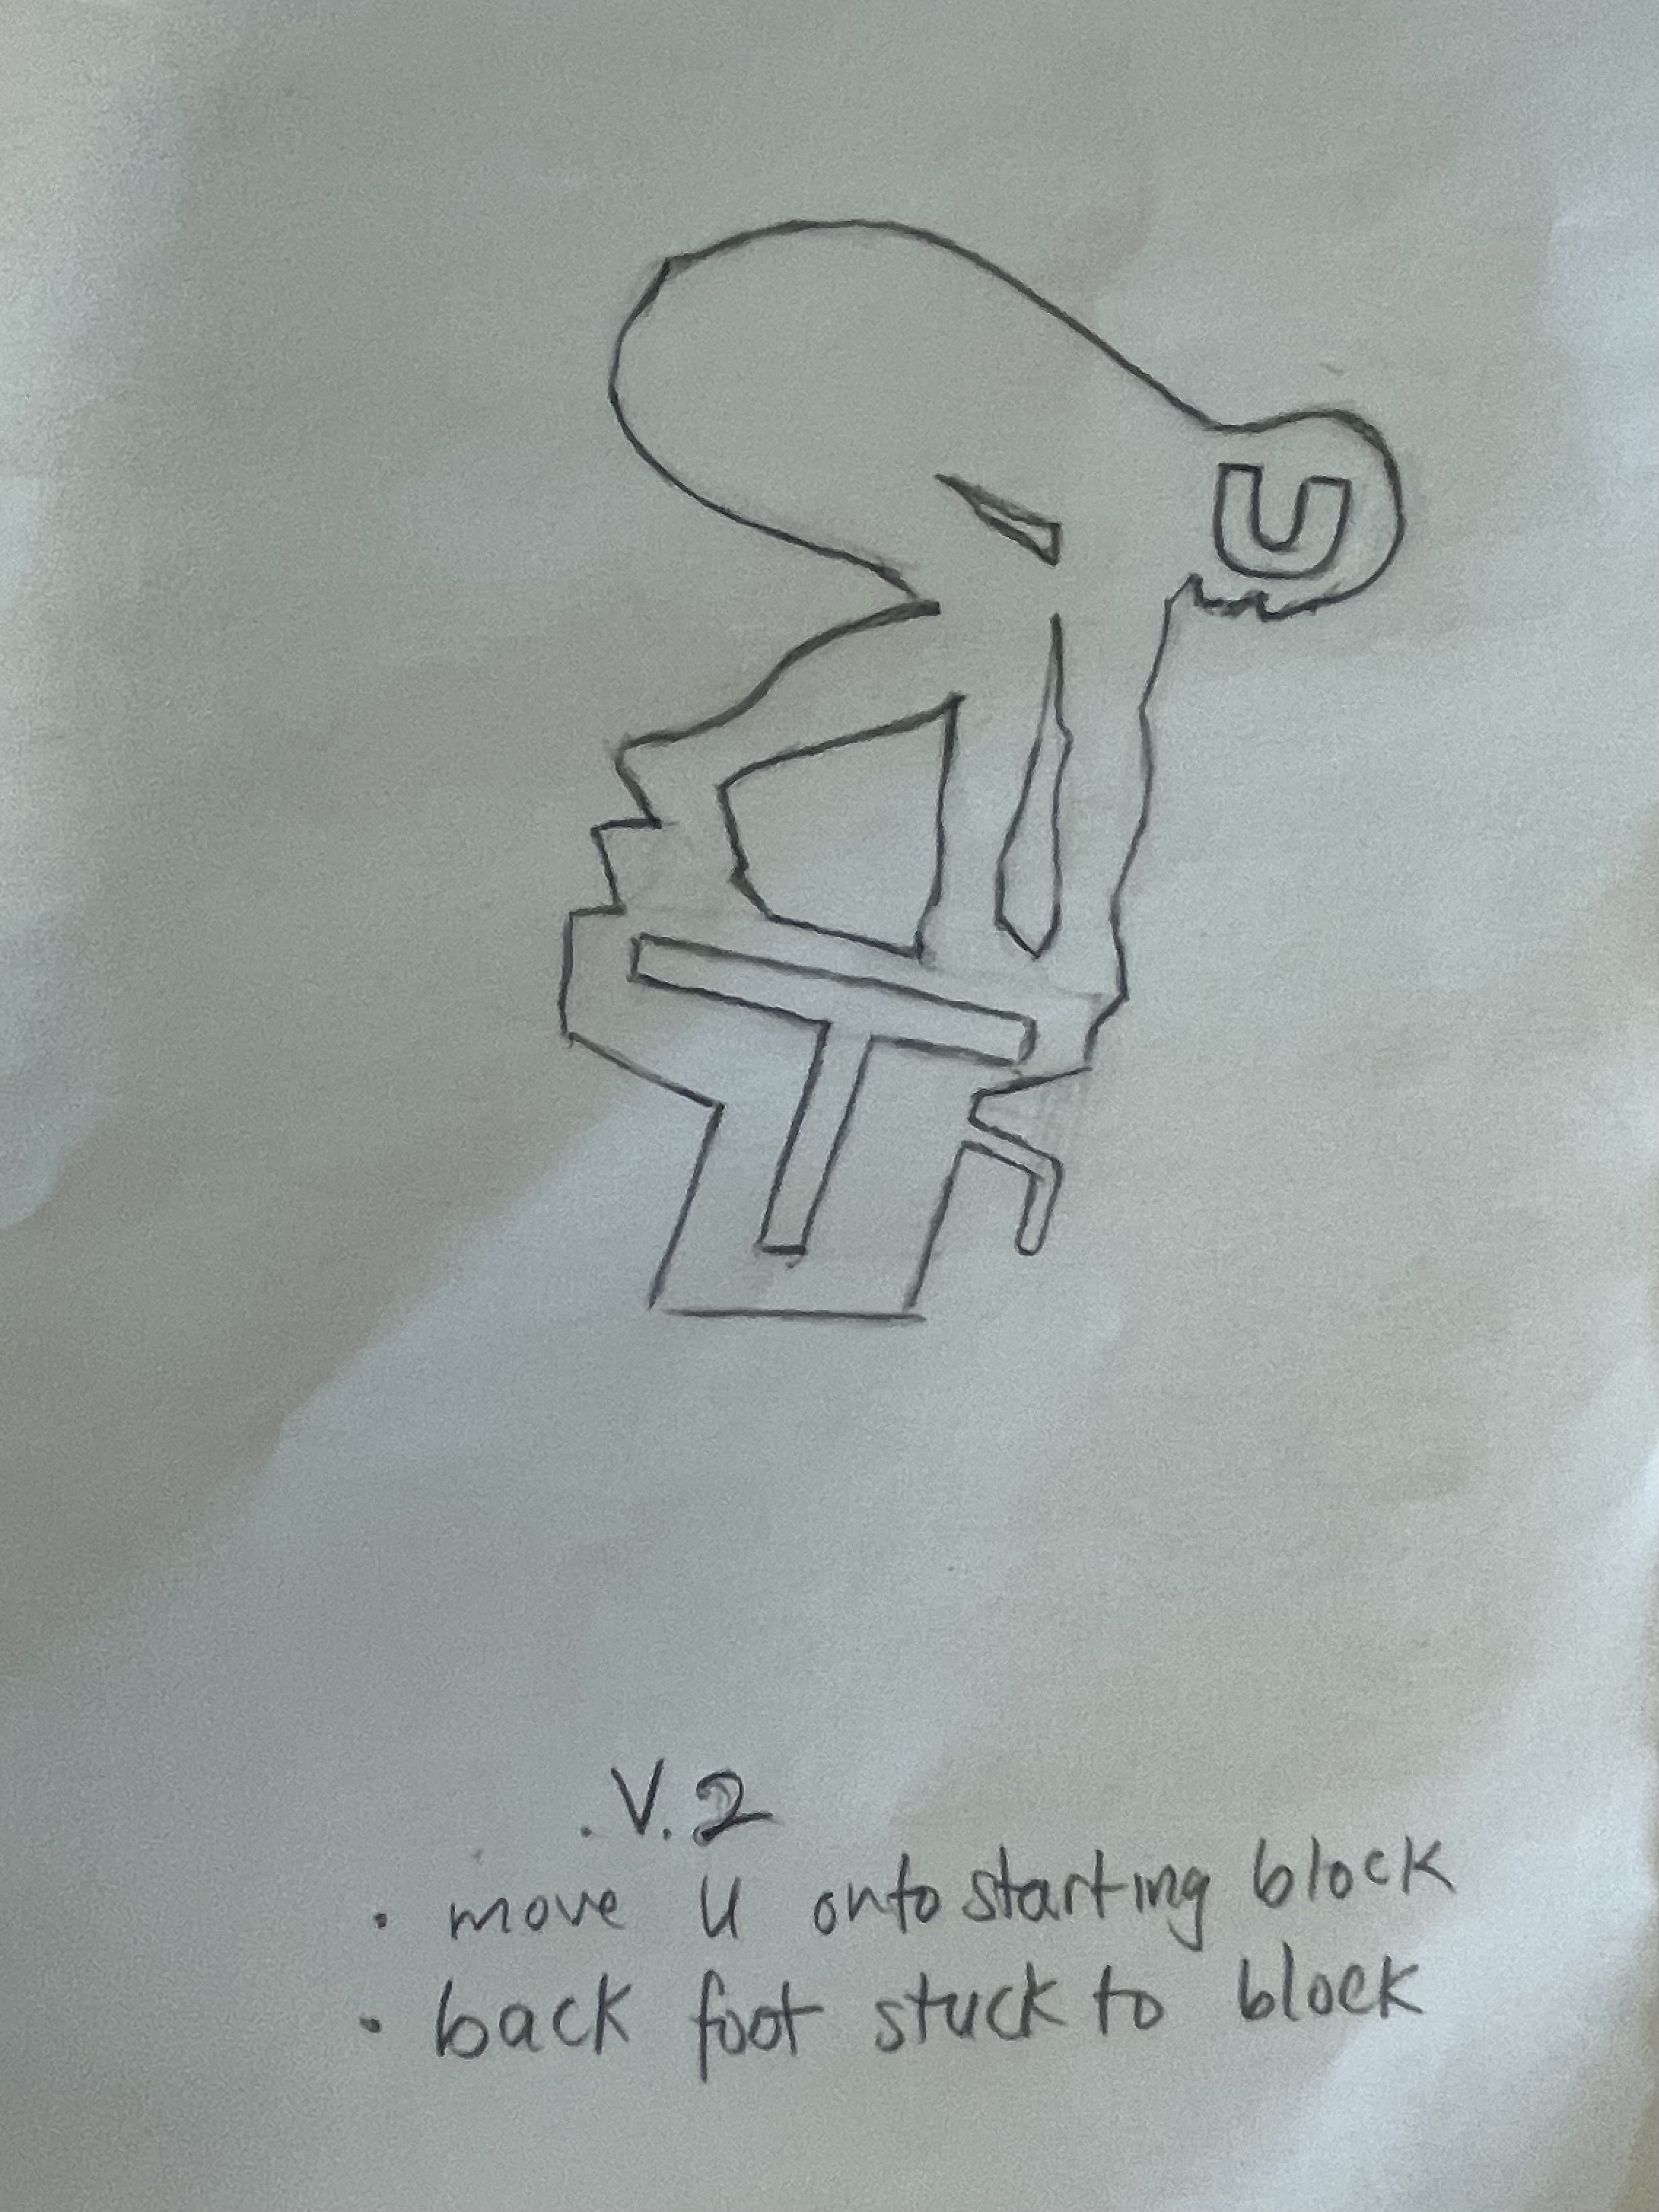 U
T
.V.2
• move U onto starting block
• back foot stuck to block